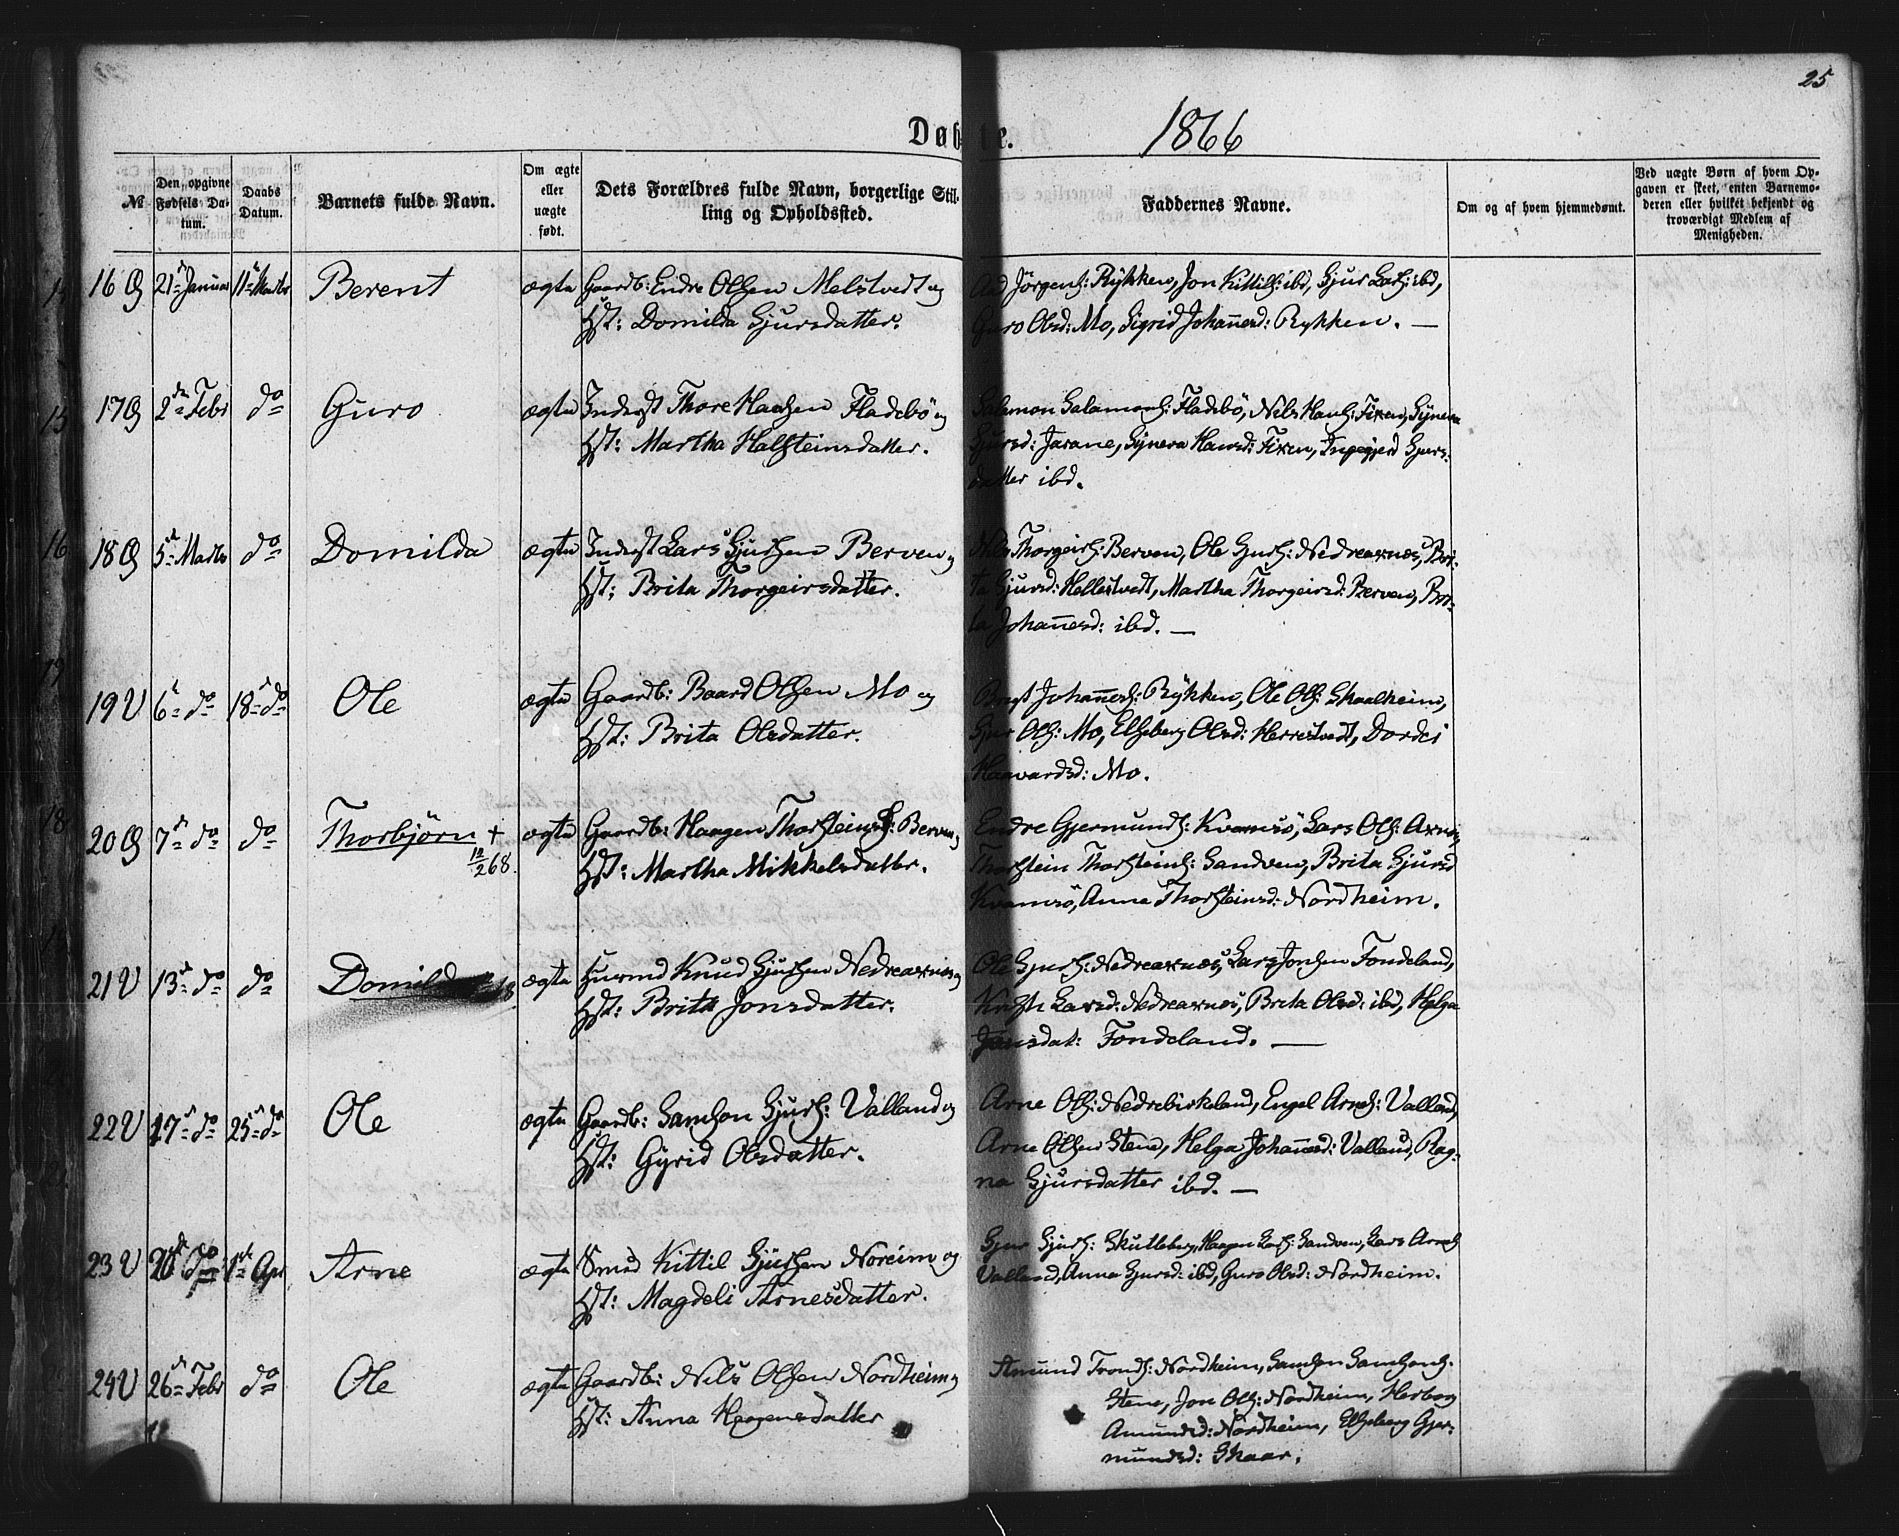 25
Døbte. 1866
№
Den opgivne Fødsels Datum.
Daabs Datum.
Barnets fulde Navn.
Om ægte eller uægte født.
Dets Forældres fulde Navn, borgerlige Stilling og Opholdssted.
Faddernes Navne.
Om og af hvem hjemmedømt.
Ved uægte Børn af hvem Opgaven er skeet, enten Barnemoderen eller hvilket bekjendt og troværdigt Medlem af Menigheden.
16 21 Januar 11 Marts Berent ægte Gaardb: Endre Olsen Melstvedt og
Hst: Domilda Sjursdatter.
Jørgens: Rykken, Jon Kittils: ibd, Sjur Lars: ibd,
Guro Olsd: Mo, Sigrid Johannesd: Rykken. —
17 2 Febr do Guro ægte Inderst Thore Hansen Fladebö og
Hst: Martha Halsteinsdatter.
Salamon Salamons: Fladebö, Nils Hans: Fixen, Syneva
Sjursd: Jarane, Syneva Hansd: Fixen, Ingegjerd Sjurs-
datter ibd.
18 5 Marts do Domilda ægte Inderst Lars Sjursen Berven og
Hst: Brita Thorgeirsdatter.
Nils Thorgeirs: Berven, Ole Sjurs: Nedreaxnes, Bri-
ta Sjursd: Hellestvedt, Martha Thorgeirsd: Berven, Bri-
ta Johannesd: ibd. —
19 V 6 do 18 do Ole ægte Gaardb: Baard Olsen Mo og
Hst: Brita Olsdatter.
Johannes: Rykken, Ole Ols: Skaalheim,
Sjur Ols: Mo, Elseberg Olsd: Herrestvedt, Dordei
Haavardsd: Mo.
20 7 do do Thorbjörn + 12/2 68. ægte Gaardb: Haagen Thorsteins: Berven,
Hst: Martha Mikkelsdatter.
Endre Gjermunds: Kvamsö, Lars Ols: Axnes,
Thorstein Thorsteins: Sandven, Brita Sjursd
Kvamsö, Anna Thorsteinsd: Nordheim.
21 V 13 do do Domilda ægte Huusmd Knud Sjursen Nedreaxnes og
Hst: Brita Jonsdatter.
Ole Sjurs: Nedreaxnes, Lars Jonsen Fondeland,
Larsd: Nedreaxnes, Brita Olsd: ibd, Helga
Jonsdat: Fondeland. —
22 V 17 do 25 do Ole ægte Gaardb: Samson Sjurs: Valland og
Hst: Gyrid Olsdatter.
Arne Ols: Nedrebirkeland, Engel Arnes: Valland,
Arne Olsen Stene, Helga Johannesd: Valland, Rag-
na Sjursdatter ibd. —
23 V 20 do 1 Apr Arne ægte Smed Kittil Sjursen Noreim og
Hst: Magdeli Arnesdatter.
Sjur Sjurs: Skutleberg, Haagen Lars: Sandven, Lars Arnes
Valland, Anna Sjursd: ibd, Guro Olsd: Nordheim.
24 V 26 Febr do Ole ægte Gaardb: Nils Olsen Nordheim og
Hst: Anna Haagensdatter
Amund Tronds: Nordheim, Samson Samsons:
Stene, Jon Ols: Nordheim, Herborg
Amundsd: Nordheim, Elseberg Gjer-
mundsd: Skaar.